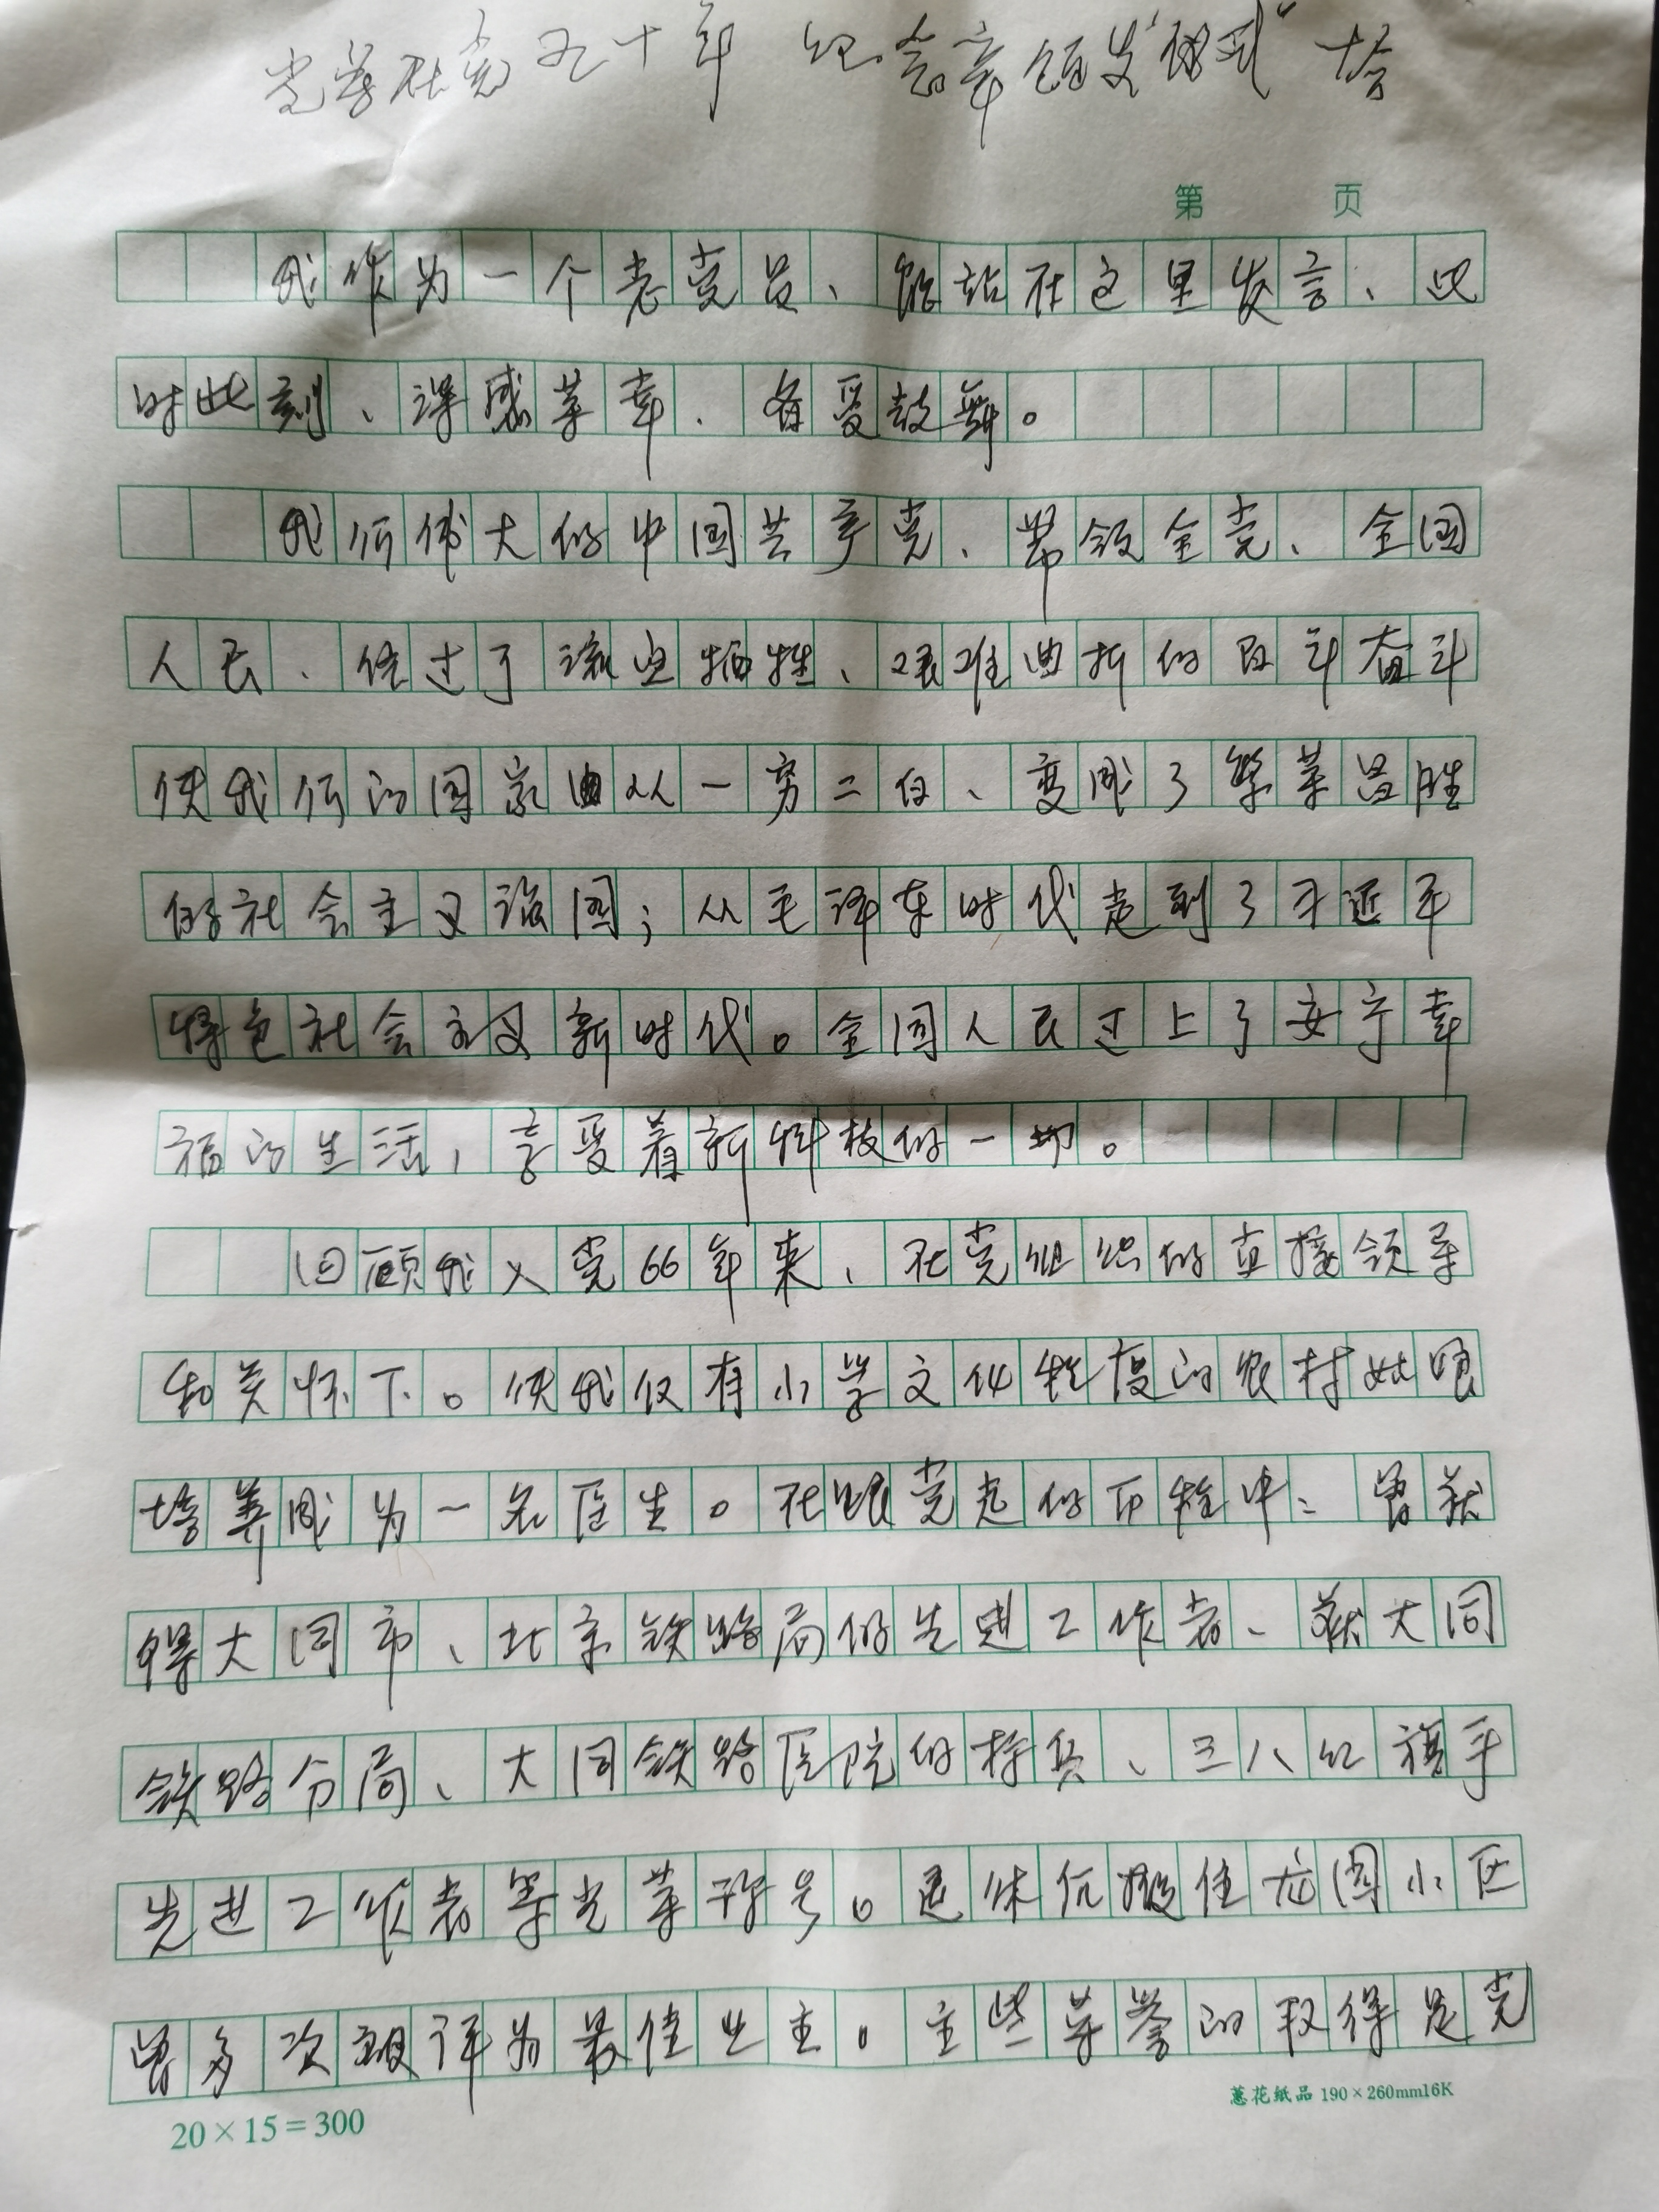 光荣在党五十年 纪念章颁发"仪式"
第 页
我作为一个老党员、能站在这里发言、此
时此刻、深感荣幸、备受鼓舞。
我们伟大的中国共产党、带领全党、全国
人民、经过了流血牺牲、艰难曲折的 斗奋斗
使我们的国家由从一穷二白、变成了繁荣昌胜
的社会主义强国；从毛泽东时代走到了习近平
特色社会主义新时代。全国人民过上了安宁幸
福的生活，享受着新科技的一切。
回顾我入党66年来、在党组织的直接领导
和关怀下。使我仅有小学文化程度的农村姑娘
培养成为一名医生。在跟党走的历程中、曾获
得大同市、北京铁路局的先进工作者、获大同
铁路分局、大同铁路医院的标兵、三八红旗手
先进工作者等光荣称号。退休后搬住龙园小区
曾多次被评为最佳业主。这些荣誉的取得是党
20×15=300
蕙花纸品 190×260mm16K